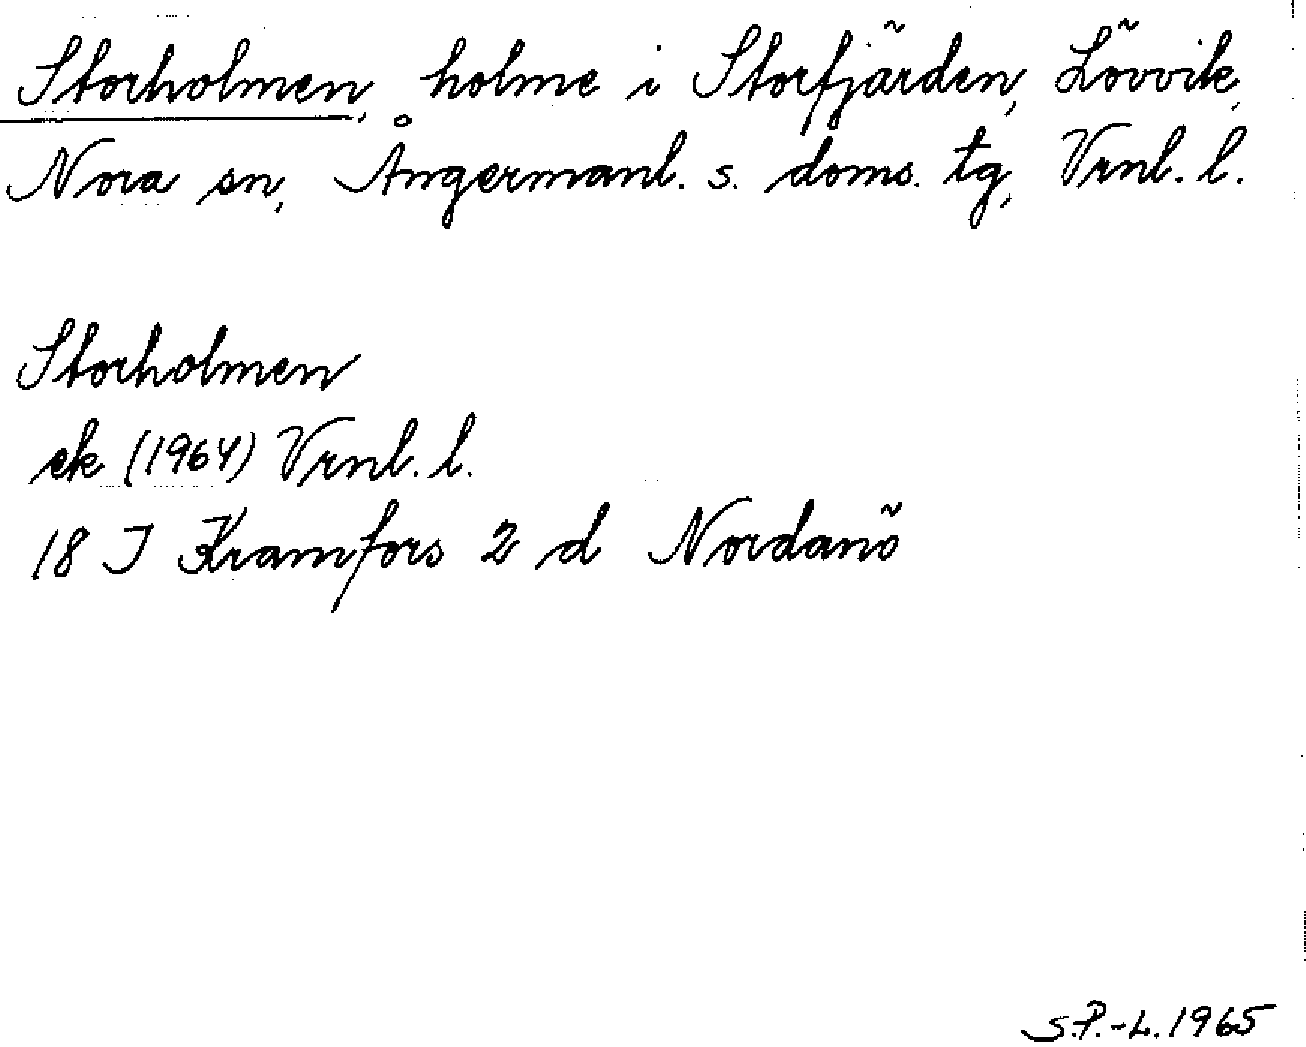 Storholmen, holme i Storfjärden, Lövvik,
Nora sn, Ångermanl. s. doms. tg, Vrnl. l.
Storholmen
ek (1964) Vrnl. l.
18 J Kramfors 2 d Nordanö
S.P.-L. 1965